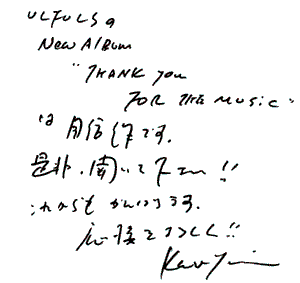 ULFULSの
NEW ALBUM
"THANK YOU
FOR THE MUSIC"
は自信作です.
是非、聞いて下さい!!
これからもがんばります.
応援ヨロシク!!